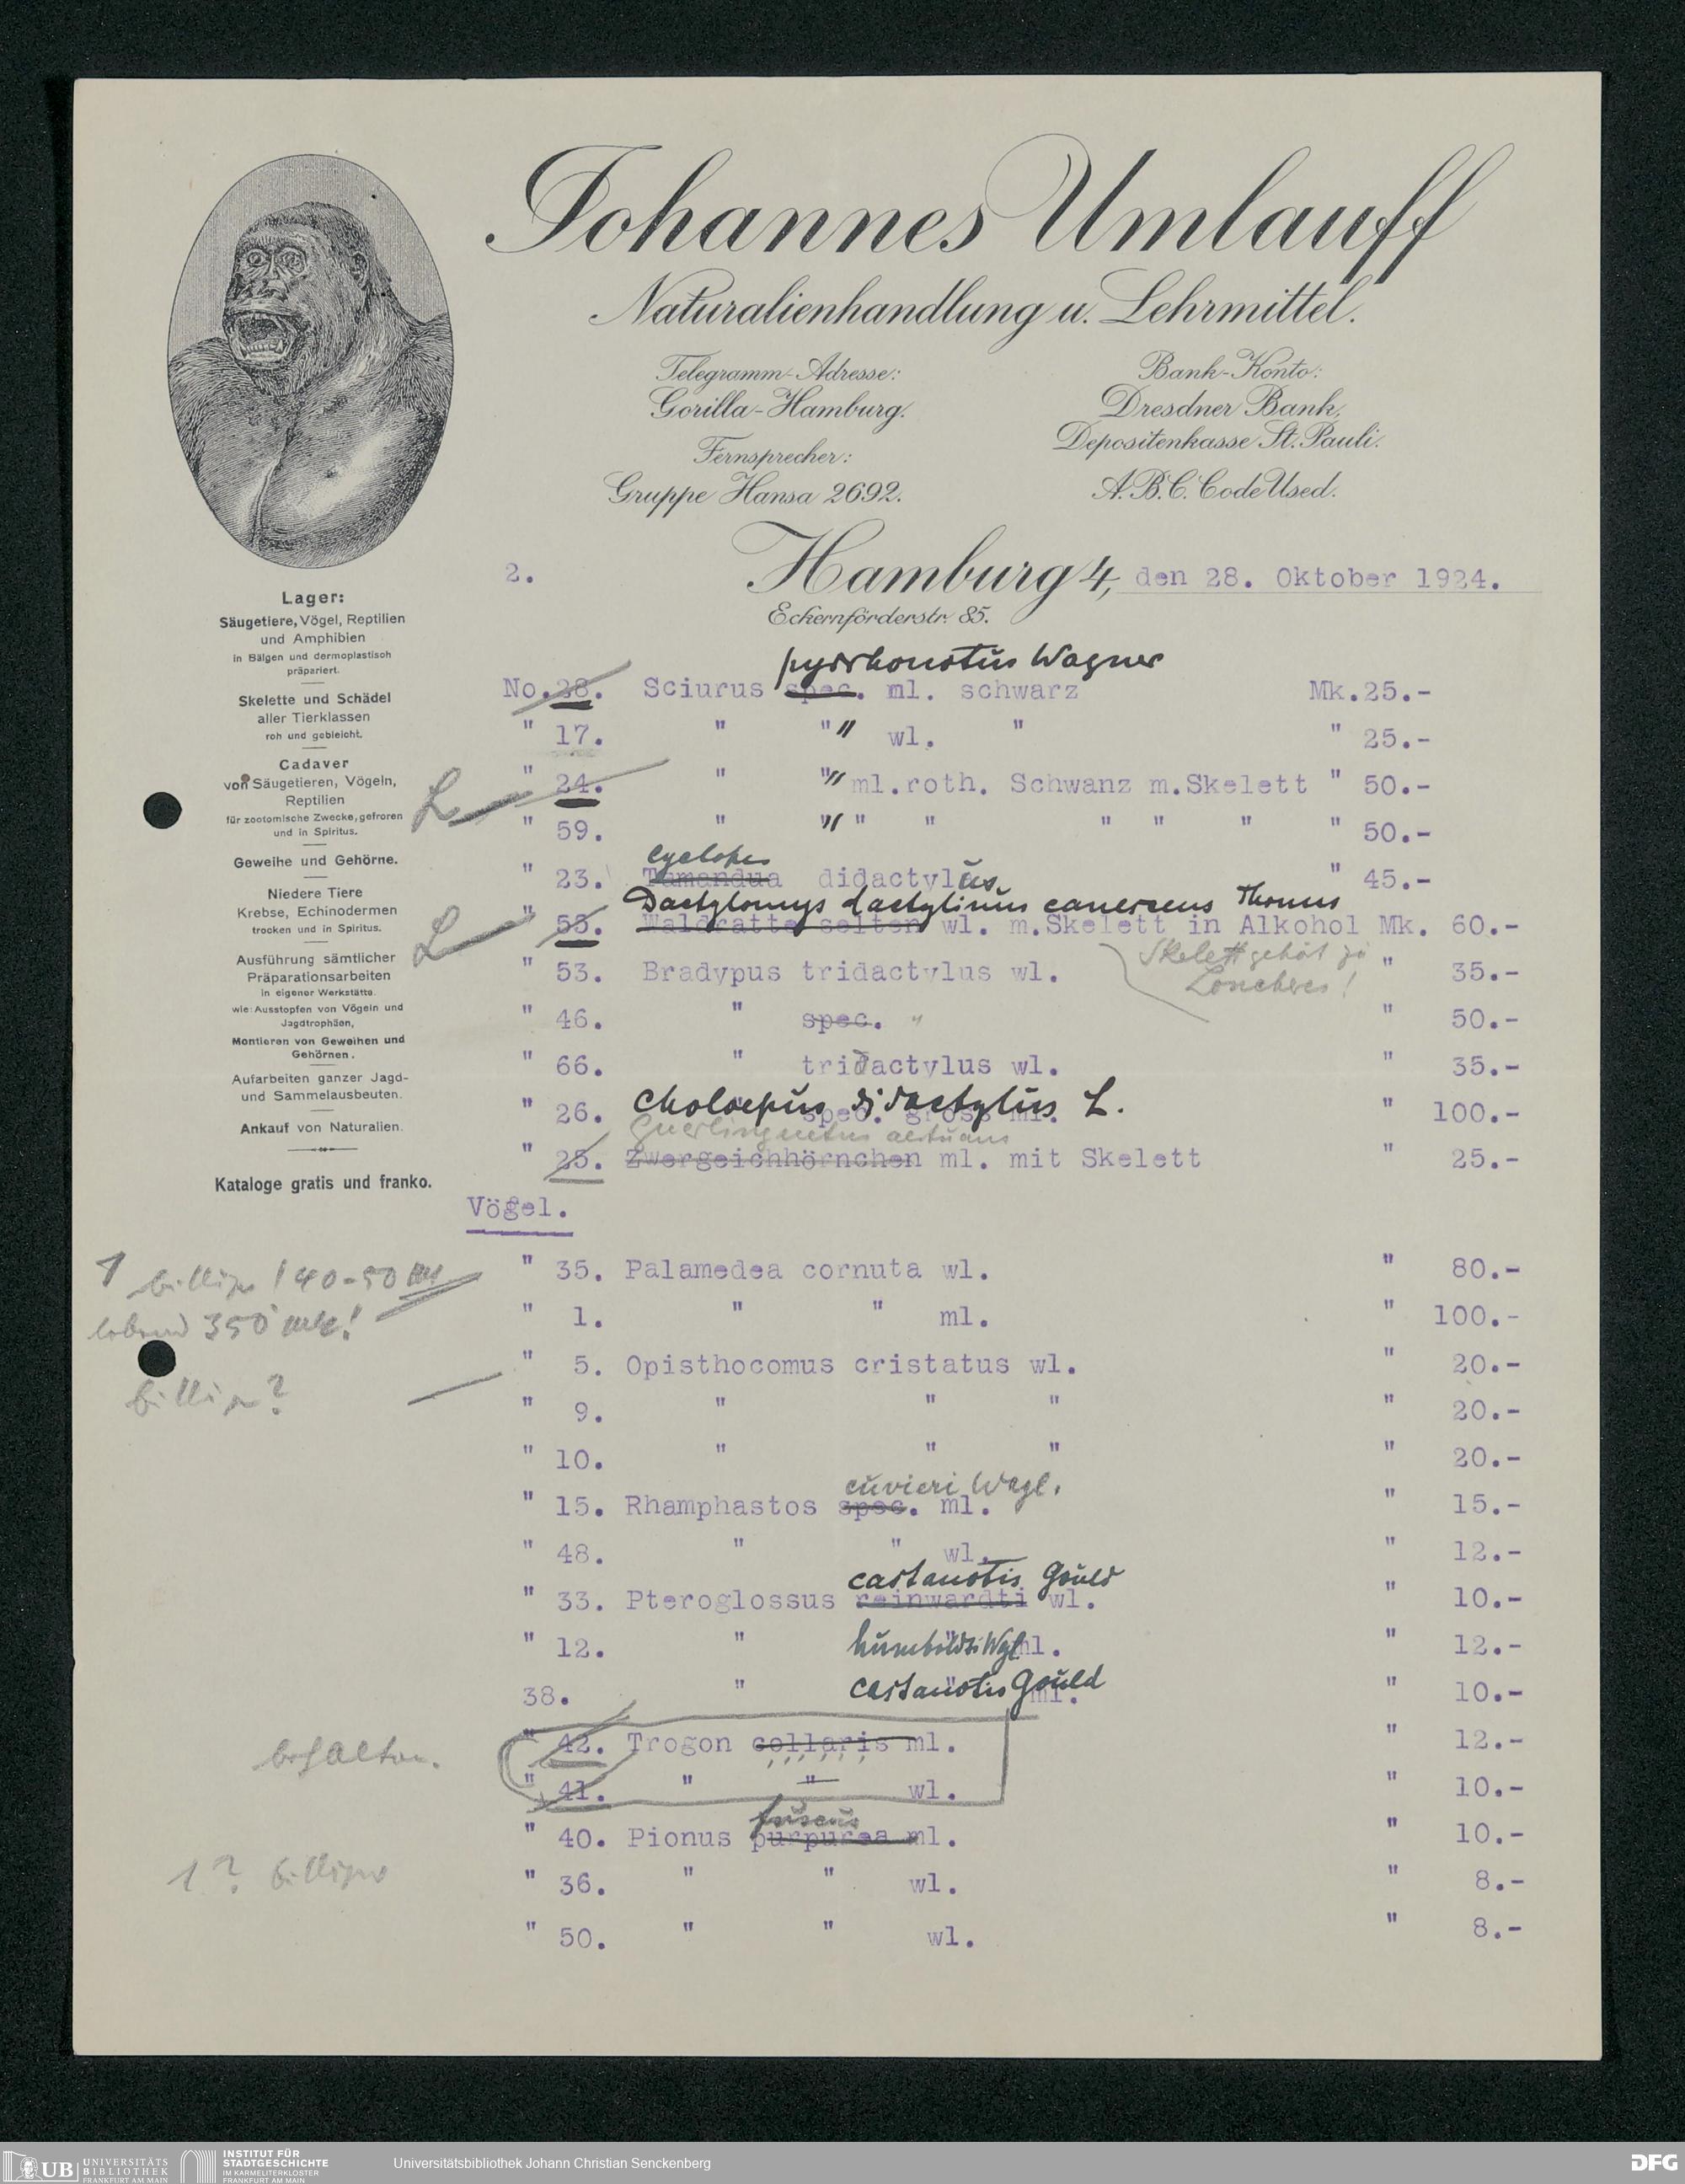 Johannes Umlauff
Naturalienhandlung u. Lehrmittel.
Telegramm-Adresse:
Gorilla-Hamburg.
Fernsprecher:
Gruppe Hansa 2692.
Bank-Konto:
Dresdner Bank,
Depositenkasse St. Pauli.
A.B.C. Code Used.
2.
Hamburg 4, den 28. Oktober 1924.
Eckernförderstr. 85.
Lager:
Säugetiere, Vögel, Reptilien
und Amphibien
in Bälgen und dermoplastisch
präpariert.
Skelette und Schädel
aller Tierklassen
roh und gebleicht.
Cadaver
von Säugetieren, Vögeln,
Reptilien
für zootomische Zwecke, gefroren
und in Spiritus.
Geweihe und Gehörne.
Niedere Tiere
Krebse, Echinodermen
trocken und in Spiritus.
Ausführung sämtlicher
Präparationsarbeiten
in eigener Werkstätte.
wie: Ausstopfen von Vögeln und
Jagdtrophäen,
Montieren von Geweihen und
Gehörnen.
Aufarbeiten ganzer Jagd-
und Sammelausbeuten.
Ankauf von Naturalien.
Kataloge gratis und franko.
pyrrhonotus Wagner
No. 28. Sciurus spec. ml. schwarz Mk. 25.-
" 17. " " " wl. " " 25.-
L " 24. " " " ml. roth. Schwanz m. Skelett " 50.-
" 59. " " " " " " " " 50.-
cyclopes
" 23. Tamandua didactylus " 45.-
Dactylomys dactylinus canescens Thomas
L " 58. Waldratte selten wl. m. Skelett in Alkohol Mk. 60.-
Skelett gehört zu
Loncheres!
" 53. Bradypus tridactylus wl. " 35.-
" 46. " spec. " " 50.-
" 66. " tridactylus wl. " 35.-
" 26. Choloepus didactylus L. spec. gross ml. " 100.-
Guerlinguetus aestuans
" 25. Zwergeichhörnchen ml. mit Skelett " 25.-
Vögel.
1 billiger! 40-50 M
" 35. Palamedea cornuta wl. " 80.-
lebend 350 Mk!
" 1. " " ml. " 100.-
" 5. Opisthocomus cristatus wl. " 20.-
billiger?
" 9. " " " " 20.-
" 10. " " " " 20.-
cuvieri Wagl.
" 15. Rhamphastos spec. ml. " 15.-
" 48. " " wl. " 12.-
castanotis Gould
" 33. Pteroglossus reinwardti wl. " 10.-
" 12. " humboldti Wgl ml. " 12.-
38. " castanotis Gould ml. " 10.-
behalten.
" 42. Trogon collaris ml. " 12.-
" 41. " " wl. " 10.-
fuscus
" 40. Pionus purpurea ml. " 10.-
1? billiger
" 36. " " wl. " 8.-
" 50. " " wl. " 8.-
UB UNIVERSITÄTS
BIBLIOTHEK
FRANKFURT AM MAIN
INSTITUT FÜR
STADTGESCHICHTE
IM KARMELITERKLOSTER
FRANKFURT AM MAIN
Universitätsbibliothek Johann Christian Senckenberg
DFG